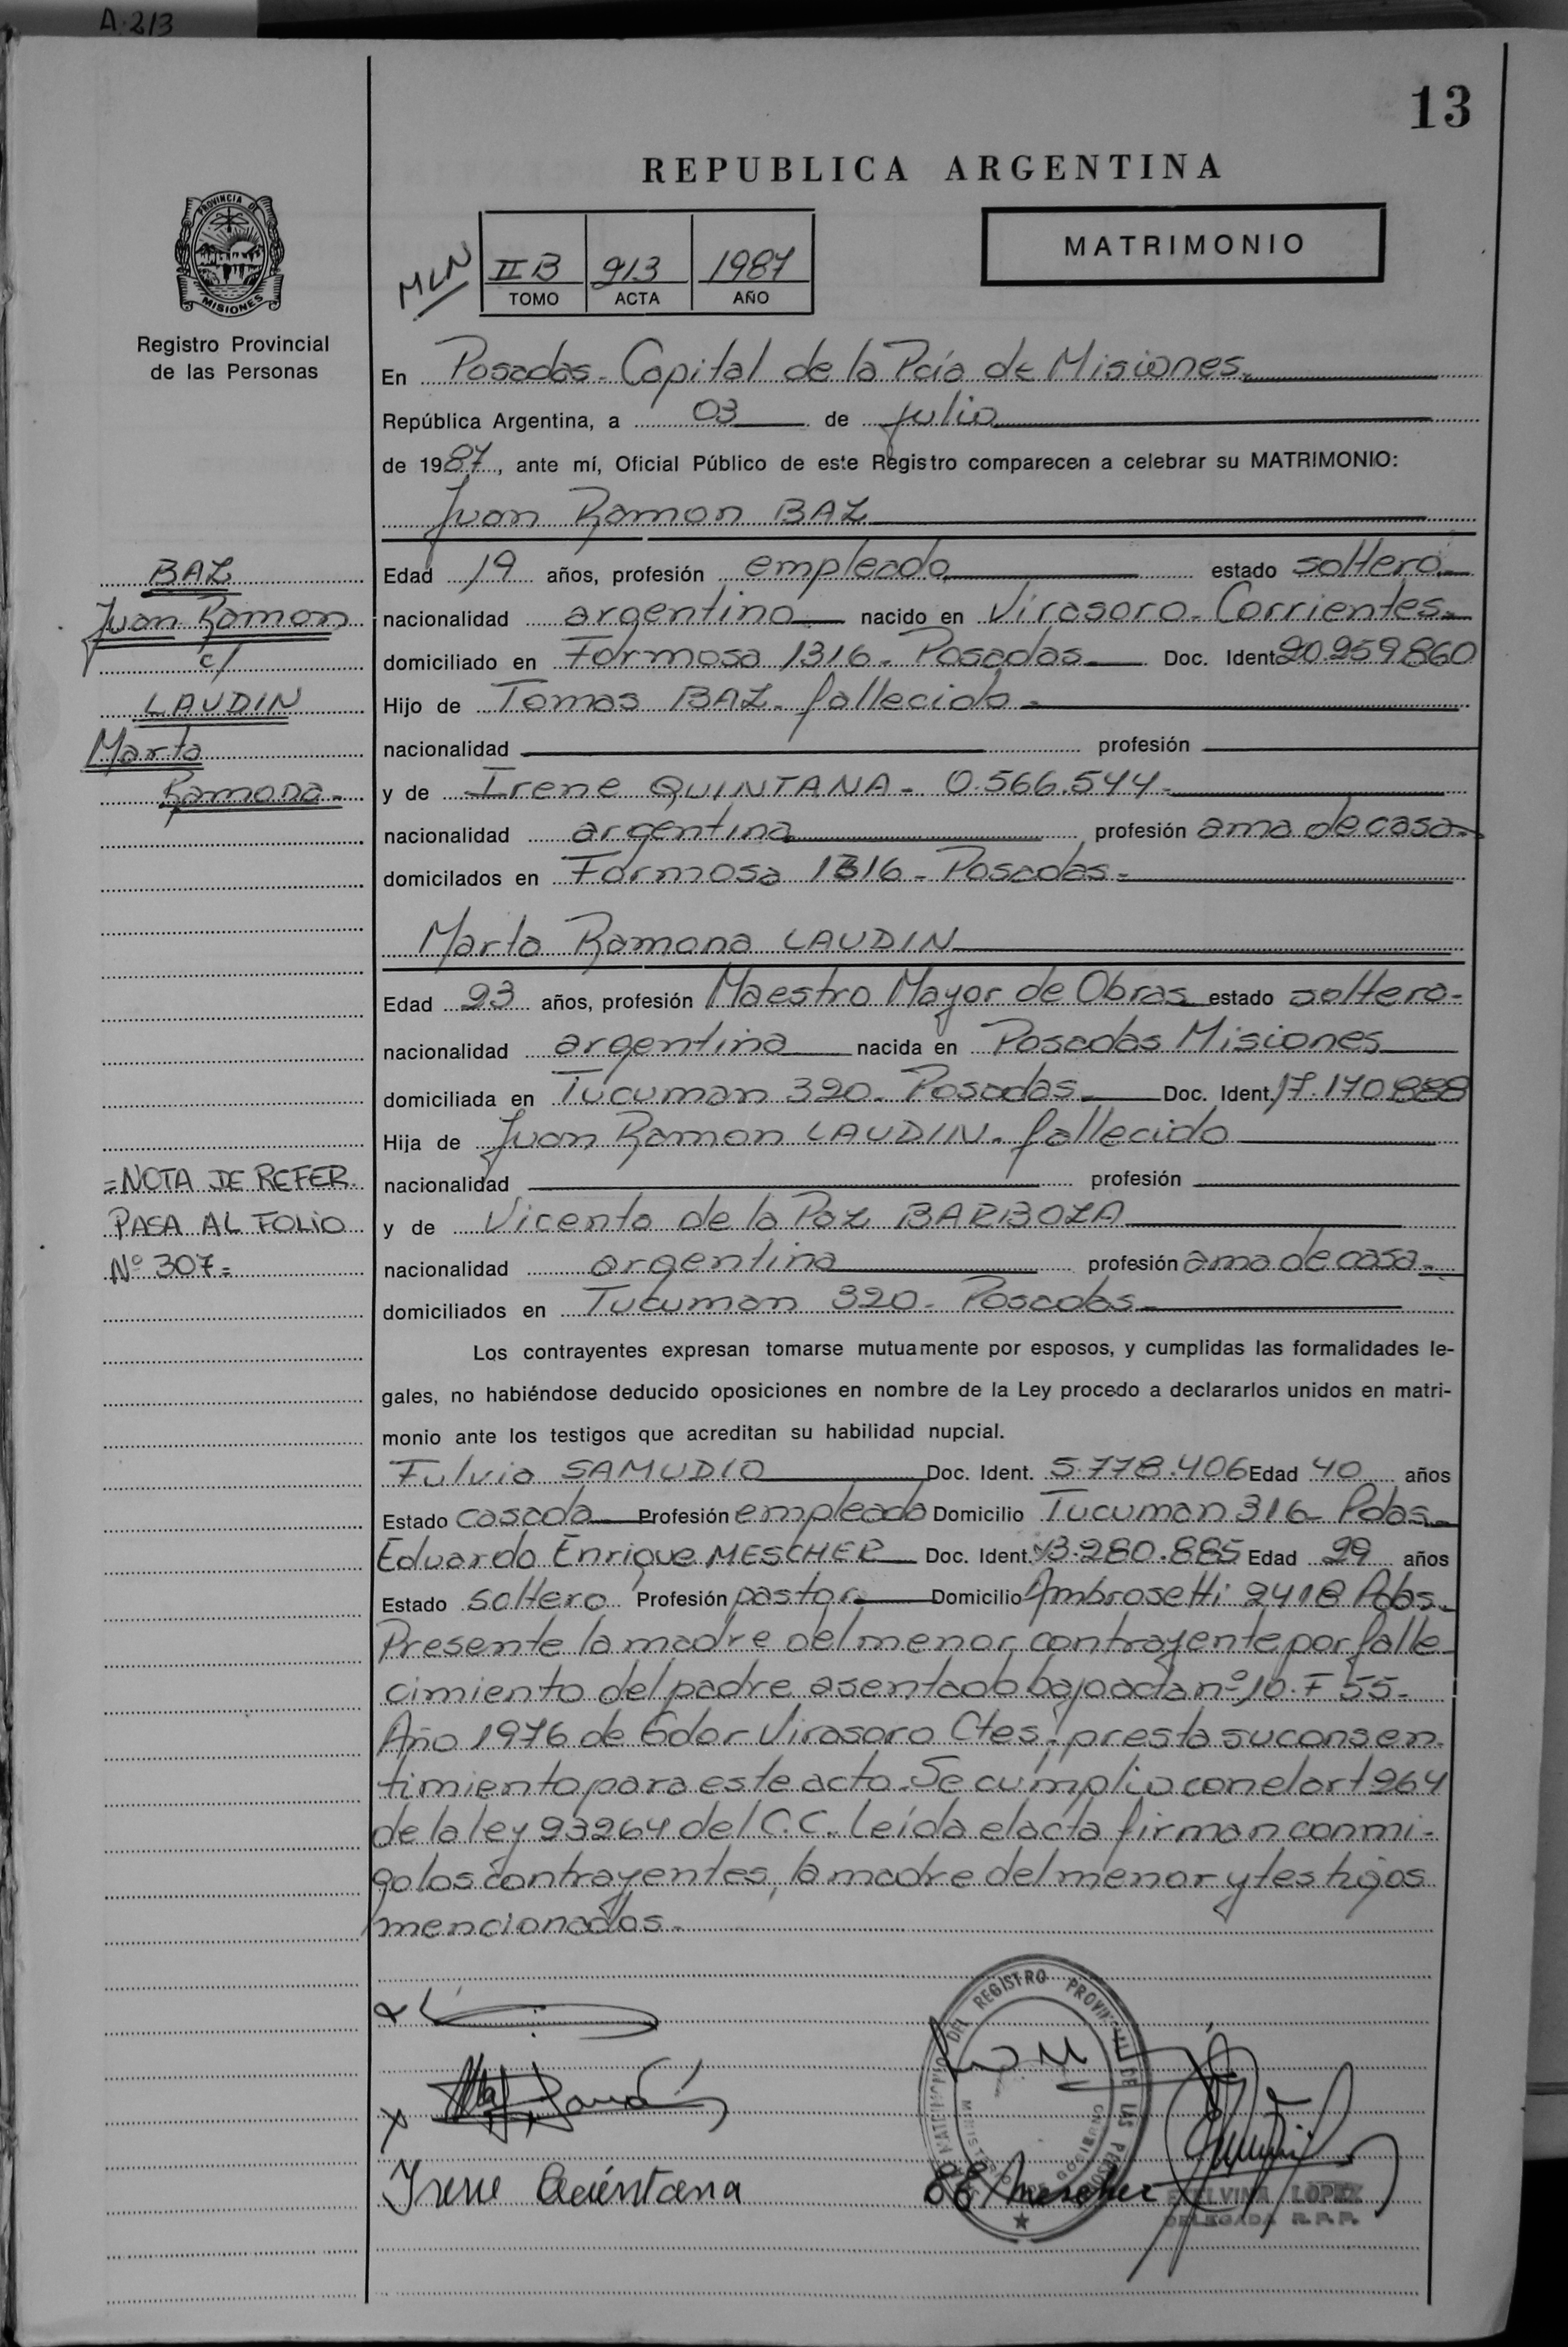 A.213
13
REPUBLICA ARGENTINA
PROVINCIA DE
MISIONES
Registro Provincial
de las Personas
MLN
II B 913 1987
TOMO ACTA AÑO
MATRIMONIO
En Posadas - Capital de la Pcía de Misiones.
República Argentina, a 03 de julio
de 1987, ante mí, Oficial Público de este Registro comparecen a celebrar su MATRIMONIO:
Juan Ramon BAZ
BAZ
Juan Ramon
c/
LAUDIN
Marta
Ramona.-
Edad 19 años, profesión empleado estado soltero.
nacionalidad argentino nacido en Virasoro - Corrientes.
domiciliado en Formosa 1316 - Posadas Doc. Ident. 20.259.860
Hijo de Tomas BAZ - fallecido -
nacionalidad profesión
y de Irene QUINTANA - 0.566.544 -
nacionalidad argentina profesión ama de casa -
domicilados en Formosa 1316 - Posadas -
Marta Ramona LAUDIN
Edad 23 años, profesión Maestro Mayor de Obras estado soltera -
nacionalidad argentina nacida en Posadas Misiones
domiciliada en Tucuman 320 - Posadas Doc. Ident. 17.170.888
Hija de Juan Ramon LAUDIN - fallecido
nacionalidad profesión
y de Vicenta de la Paz BARBOZA
nacionalidad argentina profesión ama de casa -
domiciliados en Tucuman 320 - Posadas -
=NOTA DE REFER.
PASA AL FOLIO
Nº 307=
Los contrayentes expresan tomarse mutuamente por esposos, y cumplidas las formalidades le-
gales, no habiéndose deducido oposiciones en nombre de la Ley procedo a declararlos unidos en matri-
monio ante los testigos que acreditan su habilidad nupcial.
Fulvia SAMUDIO Doc. Ident. 5.778.406 Edad 40 años
Estado casada Profesión empleada Domicilio Tucuman 316 - Pdas -
Eduardo Enrique MESCHER Doc. Ident. 13.280.885 Edad 29 años
Estado soltero Profesión pastor Domicilio Ambrosetti 2418 Pdas.
Presente la madre del menor contrayente por falle-
cimiento del padre asentado bajo acta nº 10 - F 55 -
Año 1976 de Gdor Virasoro Ctes, presta su consen-
timiento para este acto. Se cumplio con el art 264
de la ley 23264 del C.C. Leída el acta firman conmi-
go los contrayentes, la madre del menor y testigos
mencionados -
Irene Quintana
EE Mescher
DEL REGISTRO PROVINCIAL DE LAS
ETELVINA LOPEZ
DELEGADA R.P.P.